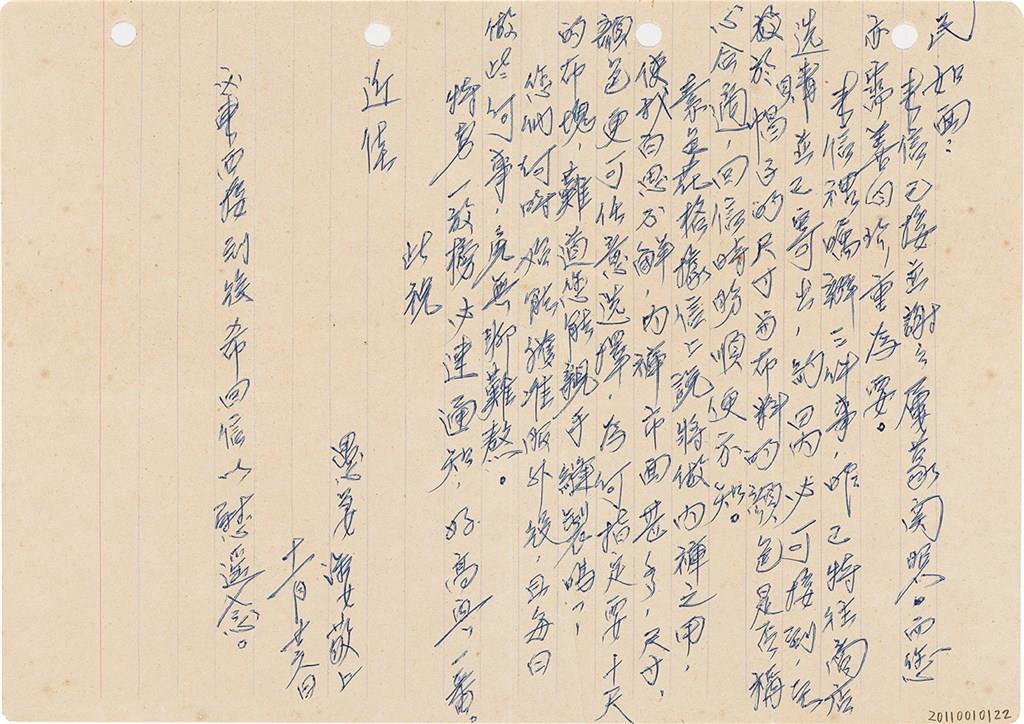 民如面：
來信已接並謝々屢蒙関照。而您
亦需善自珍重為要。
來信禮囑辦三件事，昨已特往商店
选購並已寄出，約周內必可接到，至
於 帽子的尺寸與布料的顏色是否稱
心合適，回信時盼順便示知。
素是花格據信上說將做內褲之用，
使我百思不解，內褲市面甚多，尺寸，
顏色更可任意选擇，為何指定要十天
的布塊，難道您能親手縫製嗎？
您們何時始能獲准服外役，且每日
做些何事，竟無聊難熬。
特考一放榜必速通知，好高興一番。
此祝
近佳
愚妻 海女敬上
十一月廿六日
又東西接到後希回信以慰遥念。
20110010122